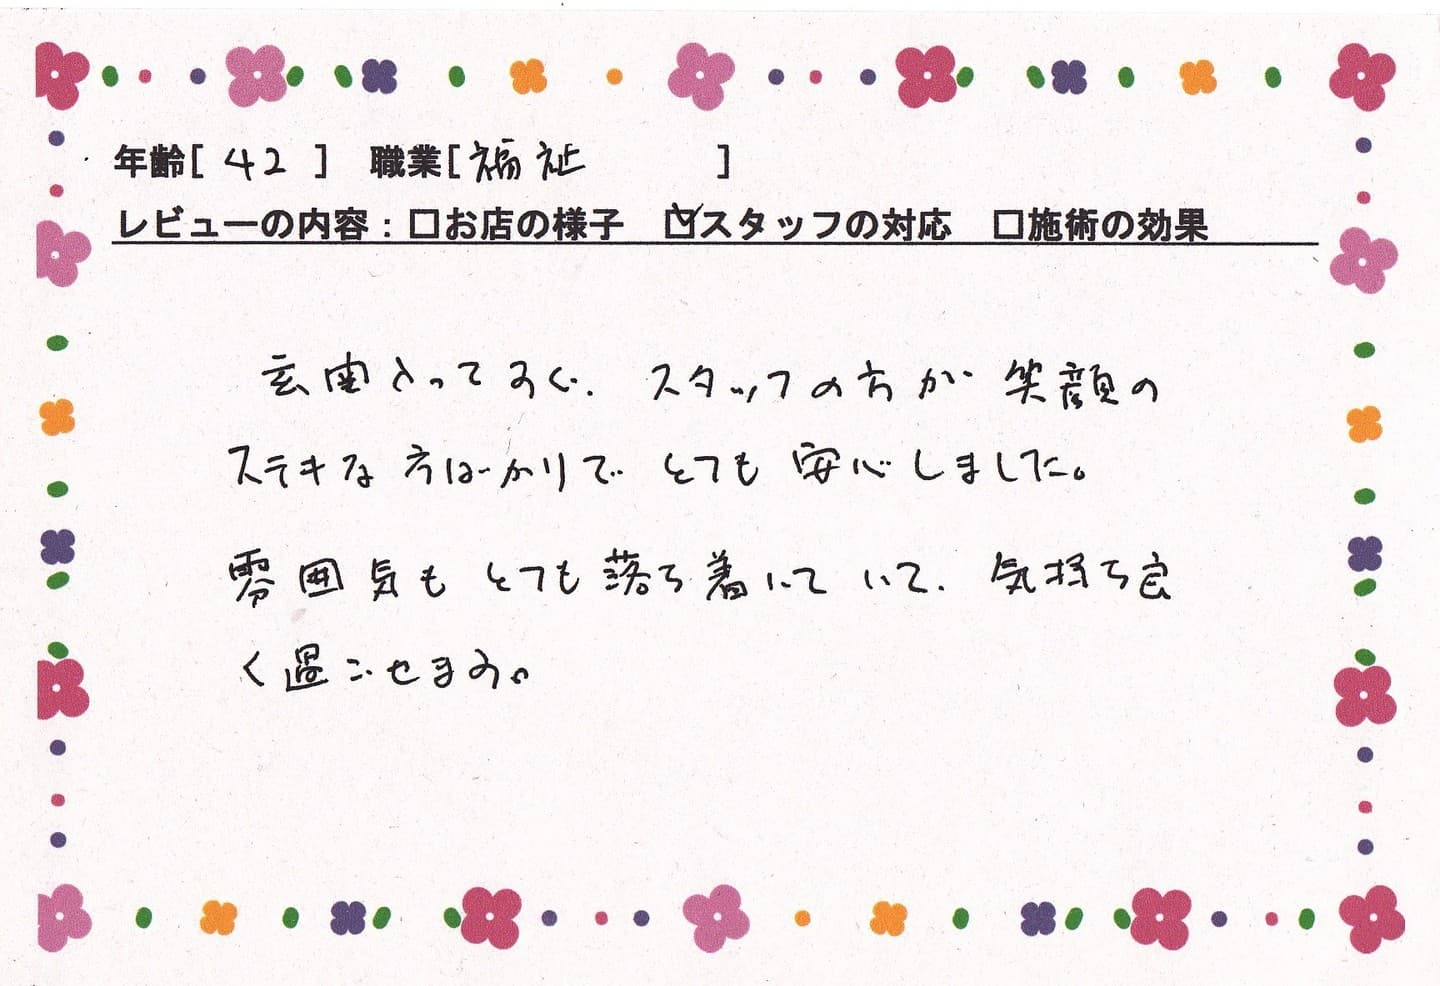 年齢[ 42 ] 職業[福祉 ]
レビューの内容：□お店の様子 ☑スタッフの対応 □施術の効果
玄関入ってすぐ、スタッフの方が笑顔の
ステキな方ばかりでとても安心しました。
雰囲気もとても落ち着いていて、気持ち良
く過ごせます。